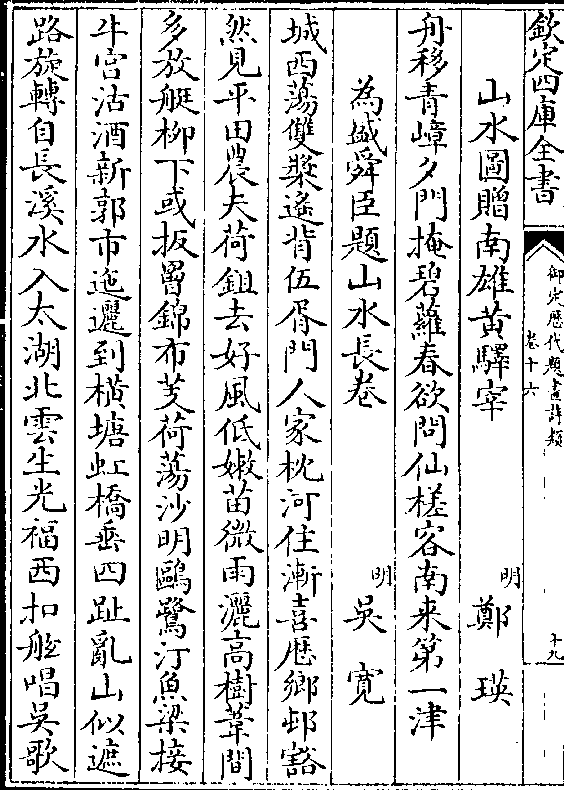 欽定四庫全書
御定歴代題畫詩類
卷十六
十九
山水圖贈南雄黄驛宰
明
鄭瑛
舟移青嶂夕門掩碧蘿春欲問仙槎客南来第一津
為盛舜臣題山水長卷
明
吳寛
城西蕩雙槳遙背伍胥門人家枕河住漸喜歴鄉邨豁
然見平田農夫荷鉏去好風低嫩苗微雨灑高樹葦間
多放艇栁下或扳罾錦布芰荷蕩沙明鷗鷺汀魚梁接
牛宫沽酒新郭市迤邐到橫塘虹橋垂四趾亂山似遮
路旋轉自長溪水入太湖北雲生光福西扣舷唱吳歌